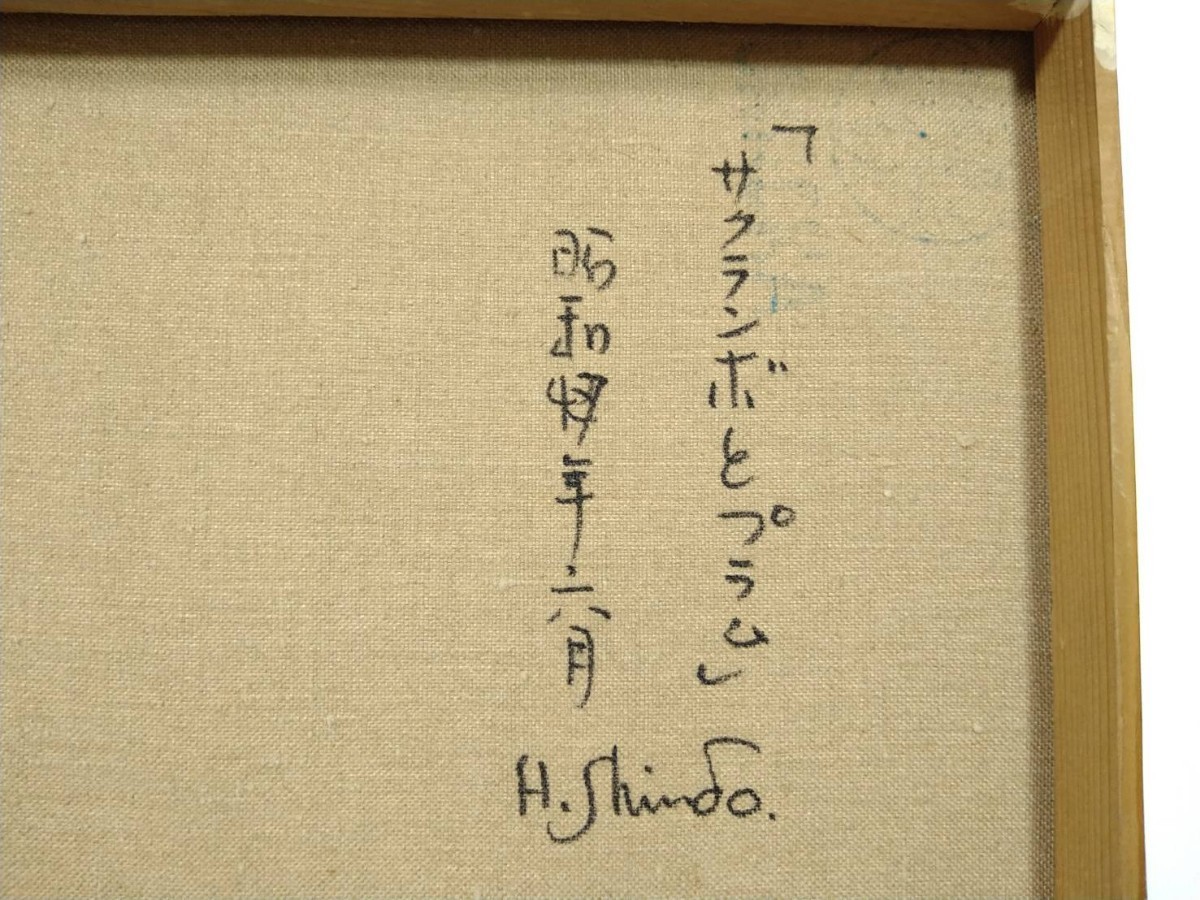 「サクランボとプラム」
昭和 年六月
H. Shindo.